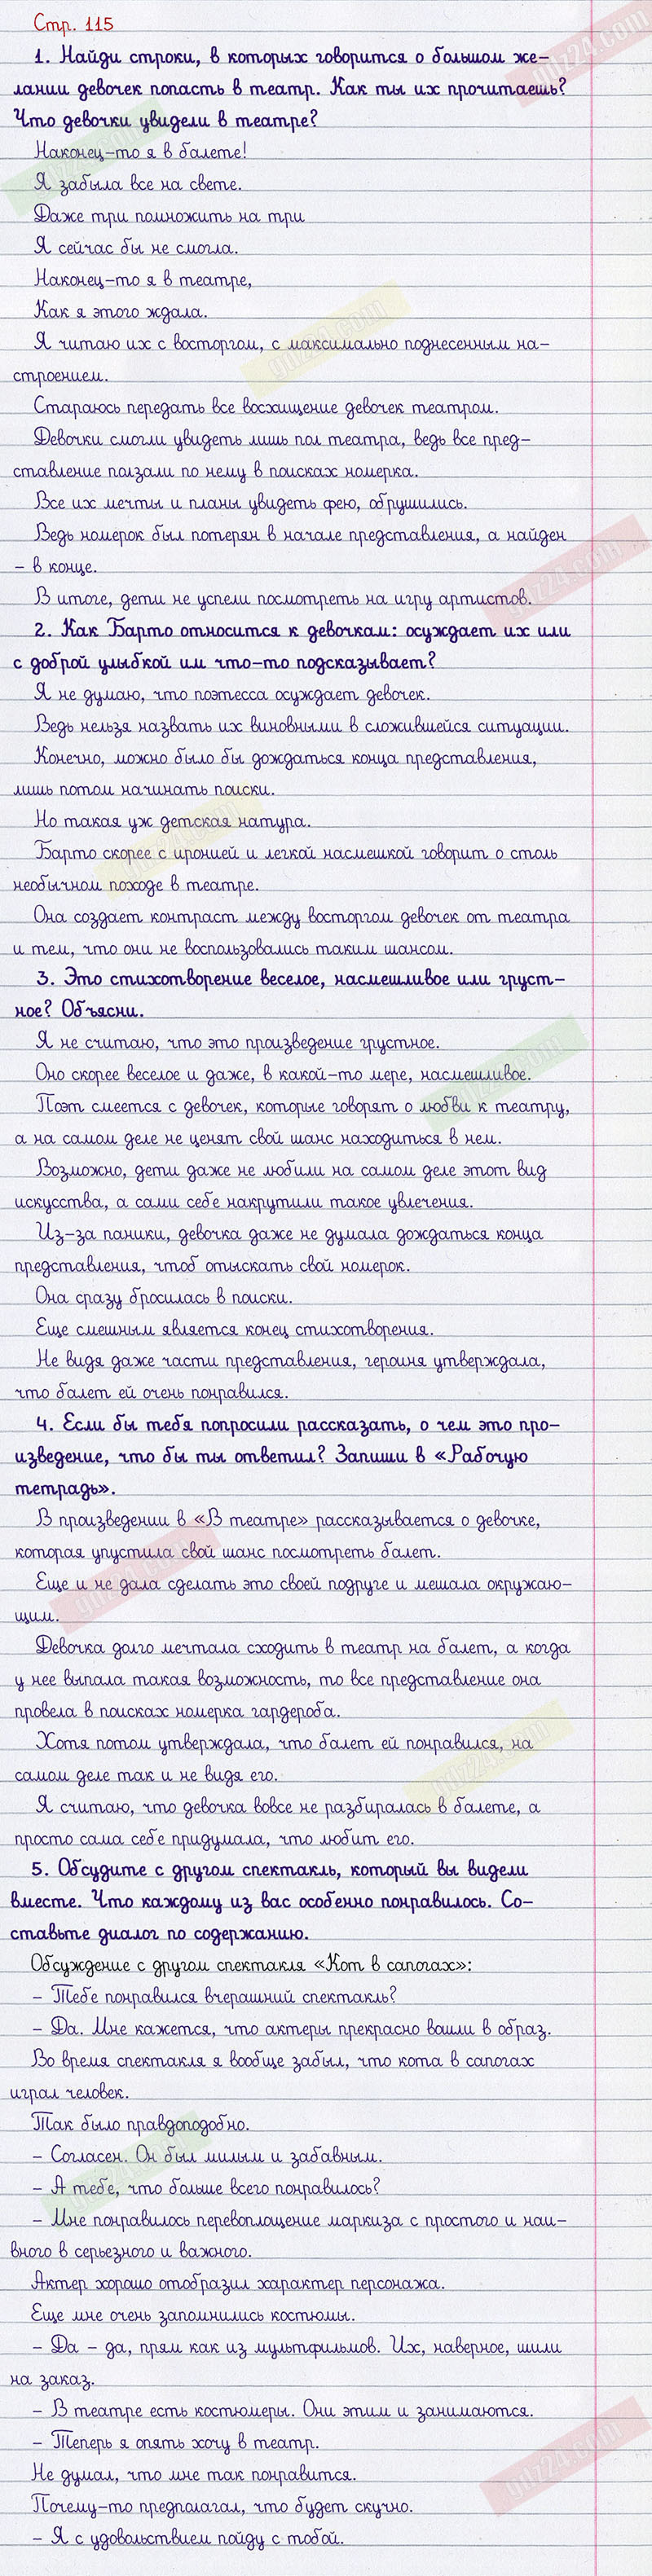 Стр. 115
1. Найди строки, в которых говорится о большом же-
лании девочек попасть в театр. Как ты их прочитаешь?
Что девочки увидели в театре?
Наконец-то я в балете!
Я забыла все на свете.
Даже три помножить на три
Я сейчас бы не смогла.
Наконец-то я в театре,
Как я этого ждала.
Я читаю их с восторгом, с максимально поднесенным на-
строением.
Стараюсь передать все восхищение девочек театром.
Девочки смогли увидеть лишь пол театра, ведь все пред-
ставление ползали по нему в поисках номерка.
Все их мечты и планы увидеть фею, обрушились.
Ведь номерок был потерян в начале представления, а найден
– в конце.
В итоге, дети не успели посмотреть на игру артистов.
2. Как Барто относится к девочкам: осуждает их или
с доброй улыбкой им что-то подсказывает?
Я не думаю, что поэтесса осуждает девочек.
Ведь нельзя назвать их виновными в сложившейся ситуации.
Конечно, можно было бы дождаться конца представления,
лишь потом начинать поиски.
Но такая уж детская натура.
Барто скорее с иронией и легкой насмешкой говорит о столь
необычном походе в театре.
Она создает контраст между восторгом девочек от театра
и тем, что они не воспользовались таким шансом.
3. Это стихотворение веселое, насмешливое или груст-
ное? Объясни.
Я не считаю, что это произведение грустное.
Оно скорее веселое и даже, в какой-то мере, насмешливое.
Поэт смеется с девочек, которые говорят о любви к театру,
а на самом деле не ценят свой шанс находиться в нем.
Возможно, дети даже не любили на самом деле этот вид
искусства, а сами себе накрутили такое увлечения.
Из-за паники, девочка даже не думала дождаться конца
представления, чтоб отыскать свой номерок.
Она сразу бросилась в поиски.
Еще смешным является конец стихотворения.
Не видя даже части представления, героиня утверждала,
что балет ей очень понравился.
4. Если бы тебя попросили рассказать, о чем это про-
изведение, что бы ты ответил? Запиши в «Рабочую
тетрадь».
В произведении в «В театре» рассказывается о девочке,
которая упустила свой шанс посмотреть балет.
Еще и не дала сделать это своей подруге и мешала окружаю-
щим.
Девочка долго мечтала сходить в театр на балет, а когда
у нее выпала такая возможность, то все представление она
провела в поисках номерка гардероба.
Хотя потом утверждала, что балет ей понравился, на
самом деле так и не видя его.
Я считаю, что девочка вовсе не разбиралась в балете, а
просто сама себе придумала, что любит его.
5. Обсудите с другом спектакль, который вы видели
вместе. Что каждому из вас особенно понравилось. Со-
ставьте диалог по содержанию.
Обсуждение с другом спектакля «Кот в сапогах»:
– Тебе понравился вчерашний спектакль?
– Да. Мне кажется, что актеры прекрасно вошли в образ.
Во время спектакля я вообще забыл, что кота в сапогах
играл человек.
Так было правдоподобно.
– Согласен. Он был милым и забавным.
– А тебе, что больше всего понравилось?
– Мне понравилось перевоплощение маркиза с простого и наи-
вного в серьезного и важного.
Актер хорошо отобразил характер персонажа.
Еще мне очень запомнились костюмы.
– Да – да, прям как из мультфильмов. Их, наверное, шили
на заказ.
– В театре есть костюмеры. Они этим и занимаются.
– Теперь я опять хочу в театр.
Не думал, что мне так понравится.
Почему-то предполагал, что будет скучно.
– Я с удовольствием пойду с тобой.
gdz24.com
gdz24.com
gdz24.com
gdz24.com
gdz24.com
gdz24.com
gdz24.com
gdz24.com
gdz24.com
gdz24.com